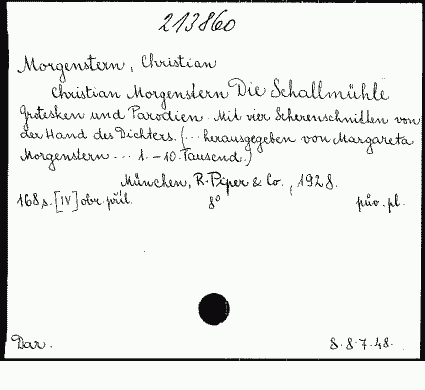 213860
Morgenstern, Christian
Christian Morgenstern Die Schallmühle
Grotesken und Parodien. Mit vier Scherenschnitten von
der Hand des Dichters. (... herausgegeben von Margareta
Morgenstern ... 1.-10. Tausend.)
München, R. Piper & Co., 1928.
168, s. [IV] obr. příl. 8° pův. pl.
Dar. 8.8.7.48.